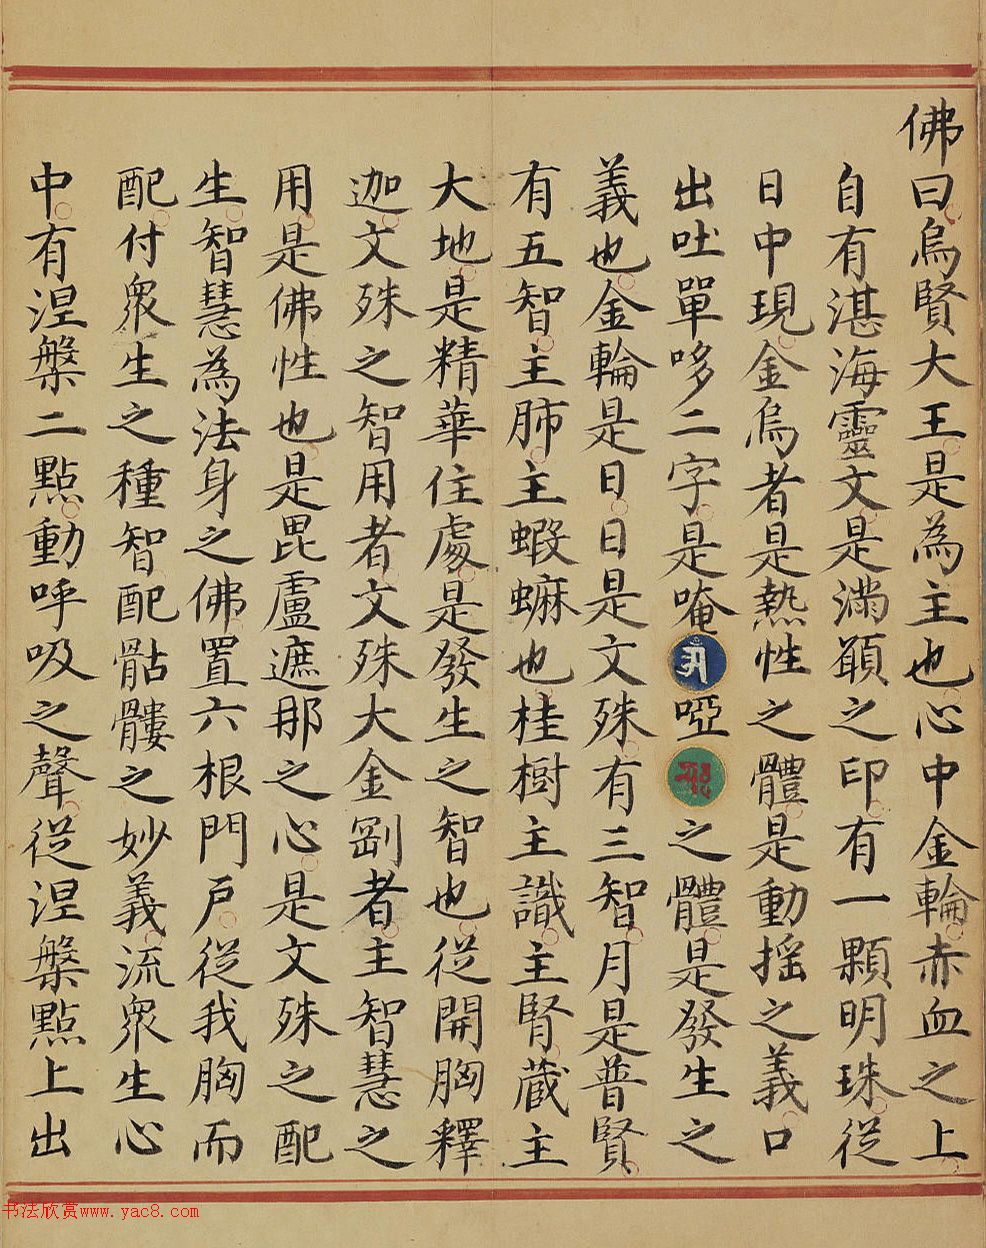 佛曰烏賢大王是為主也心中金輪赤血之上
自有湛海靈文是滿願之印有一顆明珠從
日中現金烏者是熱性之體是動搖之義口
出吐單哆二字是唵啞之體是發生之
義也金輪是日日是文殊有三智月是普賢
有五智主肺主蝦蟆也桂樹主識主腎藏主
大地是精華住處是發生之智也從開胸釋
迦文殊之智用者文殊大金剛者主智慧之
用是佛性也是毘盧遮那之心是文殊之配
生智慧為法身之佛置六根門戶從我胸而
配付眾生之種智配骷髏之妙義流眾生心
中有涅槃二點動呼吸之聲從涅槃點上出
书法欣赏www.yac8.com